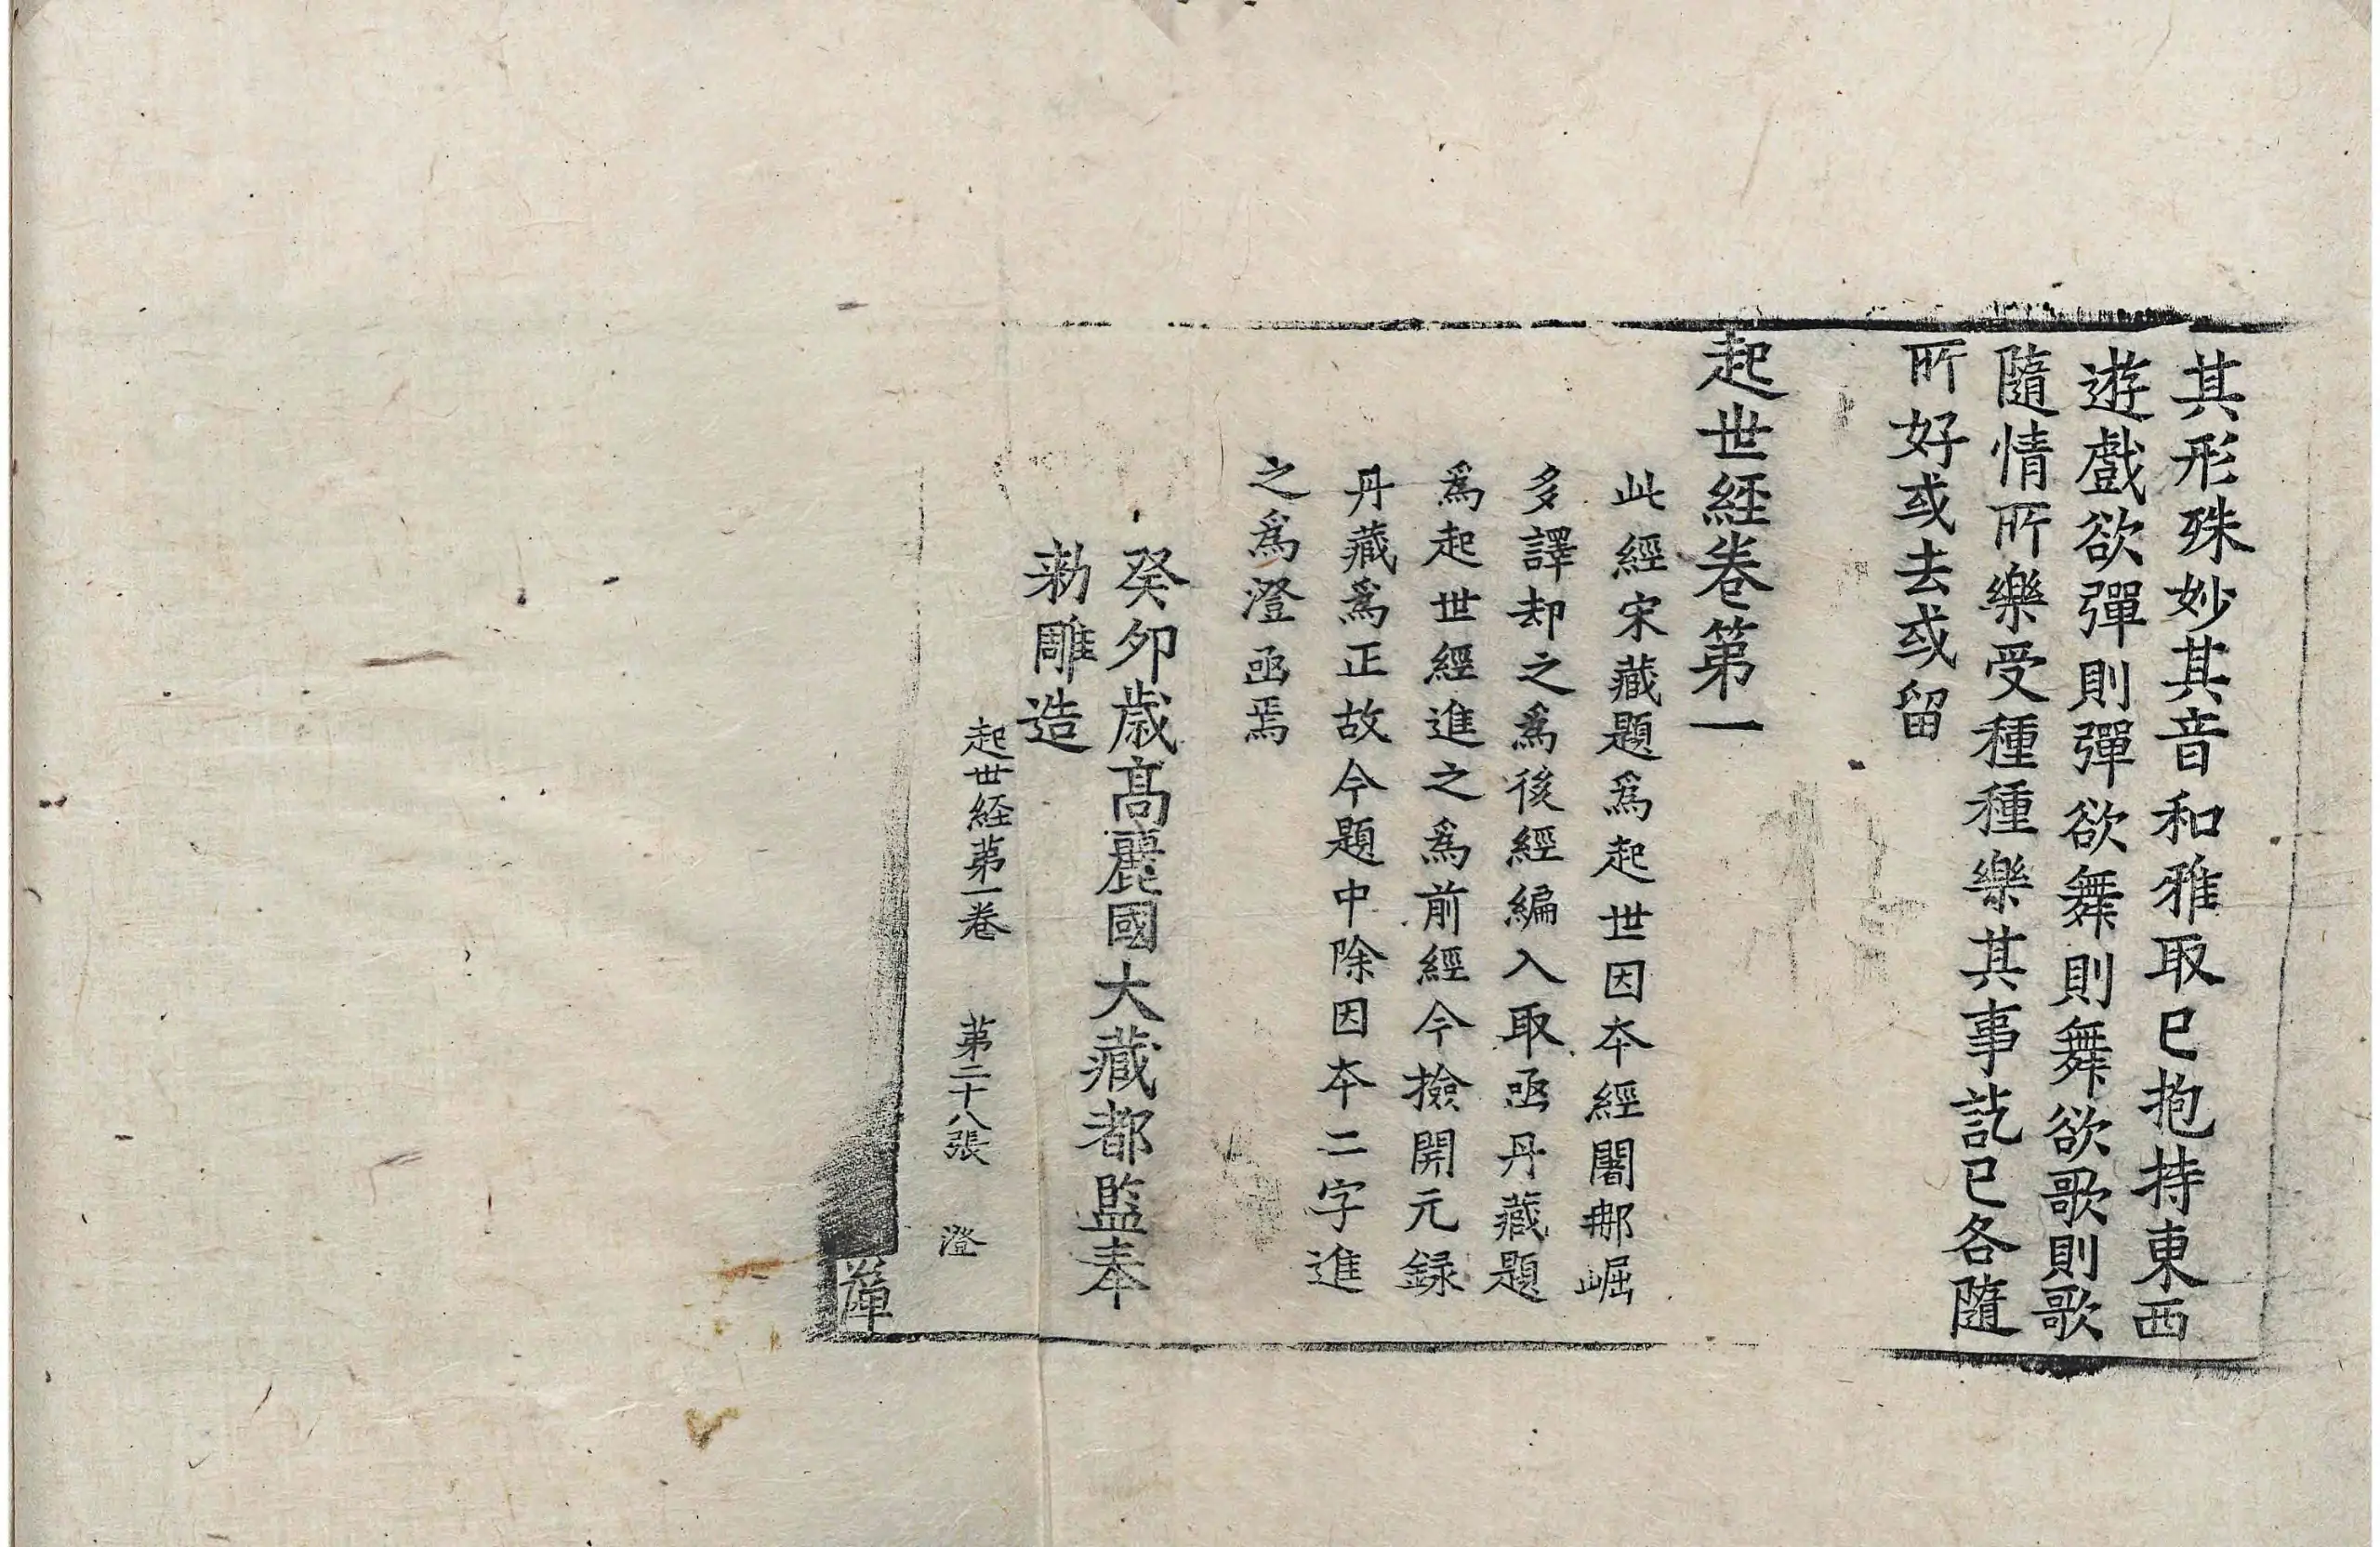 其形殊妙其音和雅取已抱持東西
遊戲欲彈則彈欲舞則舞欲歌則歌
隨情所樂受種種樂其事訖已各隨
所好或去或留
起世経卷第一
此經宋藏題爲起世因夲經闍那崛
多譯却之爲後經編入取函丹藏題
爲起世經進之爲前經今撿開元録
丹藏爲正故今題中除因夲二字進
之爲澄函焉
癸夘歲髙麗國大藏都監奉
勑雕造
起世経第一卷 第二十八張 澄